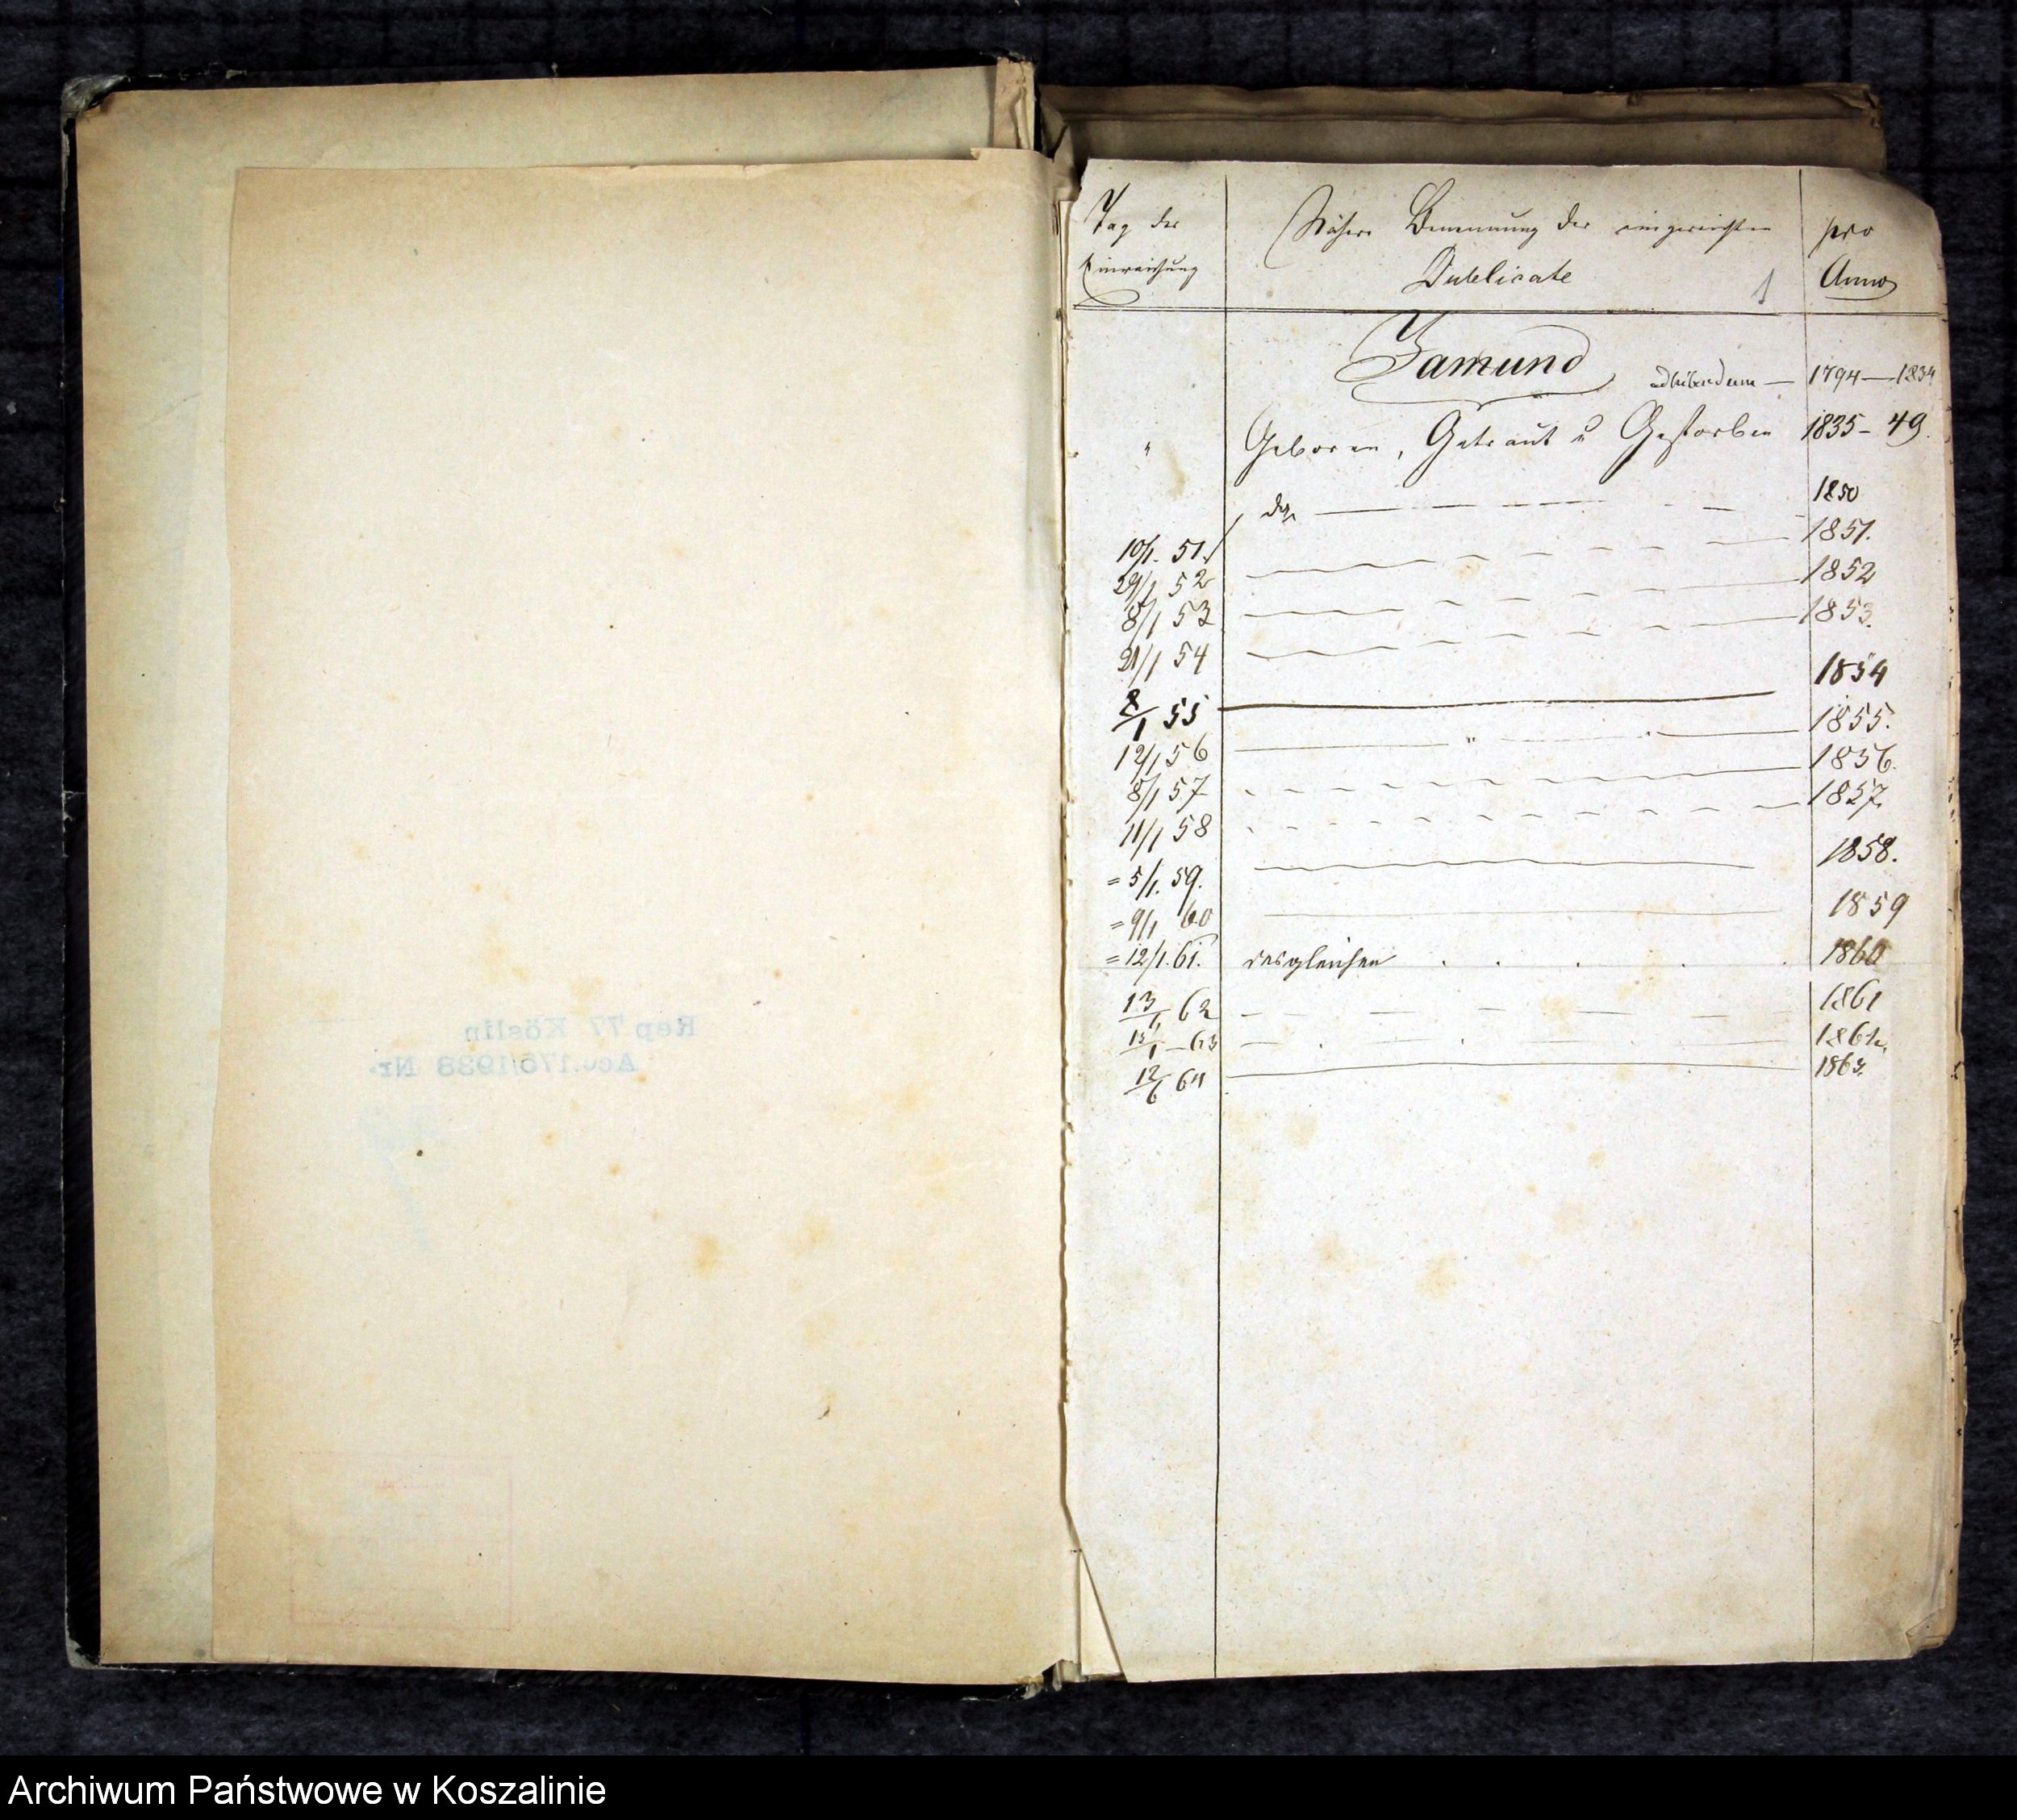 Rep 77 Köslin
Acc. 176/1938 Nr.
Tag der
Einreichung
Nähere Benennung der eingereichten
Dublicate
pro
Anno
1
Jamund
adhibendum — 1794 — 1834
" Geboren, Getraut u Gestorben 1835 - 49.
10/1. 51. do 1850
29/1 52 1851.
8/1 53 1852
21/1 54 1853.
8/1 55 1854
12/1 56 " 1855.
8/1 57 1856.
11/1 58 1857.
= 5/1. 59. 1858.
= 9/1 60 1859
= 12/1. 61. desgleichen . . . . . 1860
13/1 62 1861
13/1 - 63 1862.
12/6 64 1863.
Archiwum Państwowe w Koszalinie